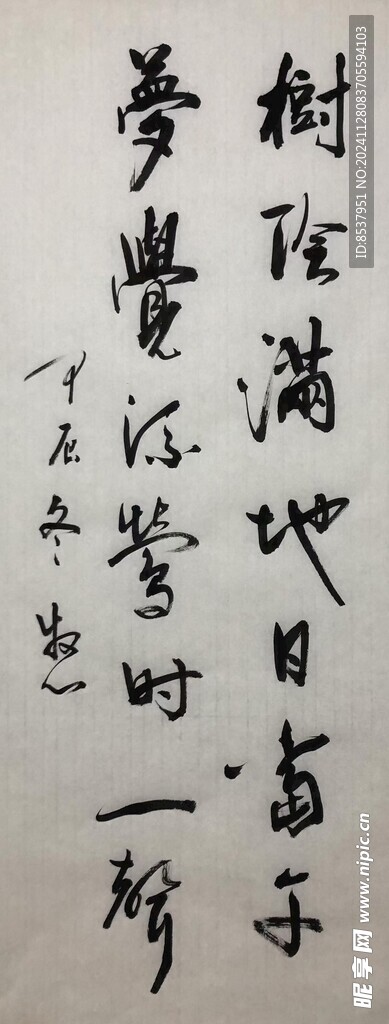 樹陰滿地日當午
夢覺流鶯时一聲
甲辰冬 牧心
ID:8537951 NO:20241128083705594103
昵享网 www.nipic.cn